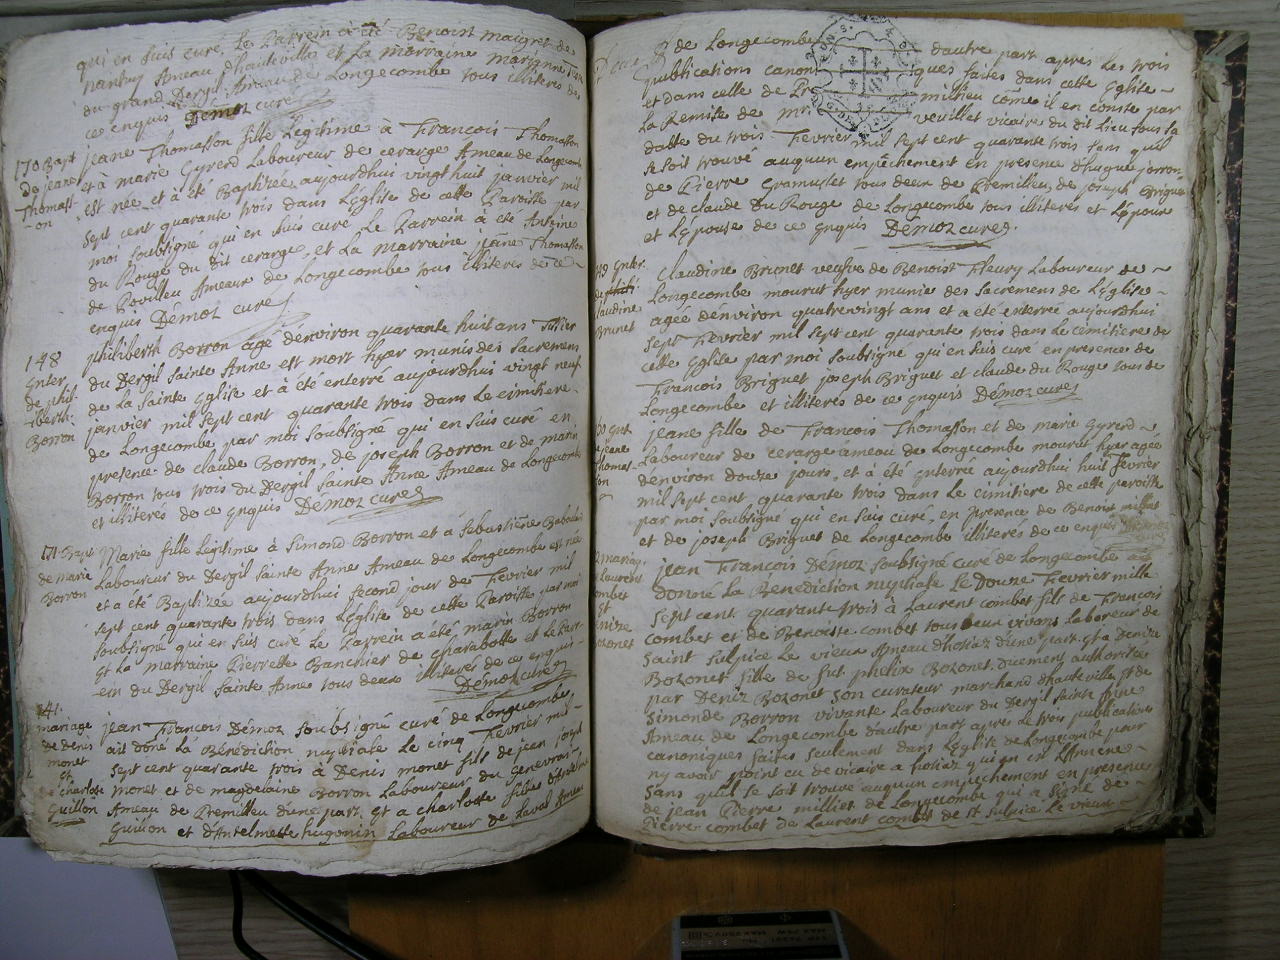 qui en suis curé Le Parrein a été Benoist maigret de
nantuy Ameau d'hauteville et La marraine marianne
du grand Dergil Ameau de Longecombe tous illiteres de
ce enquis Démoz curé
170 Bapt
De jeane
Thomass
-on
jeane Thomasson fille Legitime à François Thomasson
et à marie Gyrerd Laboureur de cerarge Ameau de Longecombe
est née et à été Baptizée aujourdhui vingt huit janvier mil
sept cent quarante trois dans L'Eglise de cette Paroiste par
moi soubsigné qui en suis curé Le Parrein à été Antoine
du Rouge du dit cerarge et La marraine jeane Thomasson
de Rovilleu Ameaux de Longecombe tous illiteres de ce
enquis Démoz curé
148
Enter.
de phil-
iberth
Borron
philiberth Borron agé d'environ quarante huit ans
du Dergil Sainte Anne est mort hyer munis des sacremens
de La sainte Eglise et à été enterré aujourdhui vingt neuf
janvier mil sept cent quarante trois dans Le cimitiere
de Longecombe par moi soubsigné qui en suis curé en
presence de claude Borron, de joseph Borron et de marin
Borron tous trois du Dergil Sainte Anne Ameau de Longecombe
et illiteres de ce enquis Démoz curé
171 Bapt
de marie
Borron
Marie fille Legitime à Simond Borron et à Sebastiene
Laboureur du Dergil Sainte Anne Ameau de Longecombe est née
et a été Baptizée aujourdhui second jour de Fievrier mil
sept cent quarante trois dans L'Eglise de cette Paroiste par moi
soubsigné qui en suis curé Le Parrein a été marin Borron
Et La marraine Pierrette Banchier de charabotte et Le Parr-
ein du Dergil Sainte Anne tous deux illiteres de ce enquis
Démoz curé
141.
mariage
de denis
monet
et
de charlote
Guillon
jean François Démoz soubsigné curé de Longecombe,
ait doné La Bénédiction nuptiale Le cinq Fevrier mil
sept cent quarante trois à Denis monet fils de jean joseph
monet et de magdelaine Borron Laboureur du Genevrai
Ameau de Premilleu d'une part. Et a charlotte fille
Guillon et d'Antelmette hugonin Laboureur de Laval Ameau
de Longecombe d'autre part apres Les trois
publications canoniques faites dans cette Eglise
et dans celle de Premilieu côme il en conste par
La Remise de mr. veuillet vicaire du dit Lieu sous la
datte du trois Fievrier mil sept cent quarante trois sans quil
se soit trouvé auquun empêchement en presence d'hugue jorron,
de Pierre Gramuslet tous deux de Premilleu, de joseph Briguet
et de claude Du Rouge de Longecombe tous illiterés et L'époux
et L'épouse de ce enquis Démoz curé.
149 Enter.
de
claudine
Brunet
Claudine Brunet veufve de Benoist Fleury Laboureur de
Longecombe mourut hyer munie des sacremens de L'Eglise
agée denviron quatrevingt ans et a été enterrée aujourdhui
sept Fevrier mil sept cent quarante trois dans Le cémitiere de
cette Eglise par moi soubsigné qui en suis curé en presence de
François Briguet joseph Briguet et claude du Rouge tous de
Longecombe et illiteres de ce enquis Démoz curé
Ent
de jeane
Thomas-
son
jeane fille de François Thomasson et de marie Gyrerd
Laboureur de cerarge ameau de Longecombe mourut hyer agée
denviron douze jours, et à été enterrée aujourdhui huit Fevrier
mil sept cent quarante trois dans Le cimitiere de cette paroiste
par moi soubsigné qui en suis curé, en presence de Benoist
et de joseph Briguet de Longecombe illiterés de ce enquis
mariag.
de Laurent
combet
Et
denize
Bozonet
jean François Démoz soubsigné curé de Longecombe ait
donné La Bénédiction nuptiale Le Douze Fievrier mille
sept cent quarante trois à Laurent combet fils de François
combet et de Benoiste combet tous deux vivans Laboreur de
Saint Sulpice Le vieux Ameau d'hotiaz d'une part. et a Denize
Bozonet fille de fut phelix Bozonet duement authorizée
par Deniz Bozonet son curateur marchand d'hauteville, et de
Simonde Borron vivante Laboureur du Dergil Sainte Anne
Ameau de Longecombe d'autre part apres Le trois publications
canoniques faites seulement dans L'Eglise de Longecombe pour
ny avoir point eu de vicaire a hotiaz qui en est L'Annexe
sans quil se soit trouvé auquun empêchement en presence
de jean Pierre milliet de Longecombe qui a signé de
Pierre combet de Laurent combet de st Sulpice Le vieux